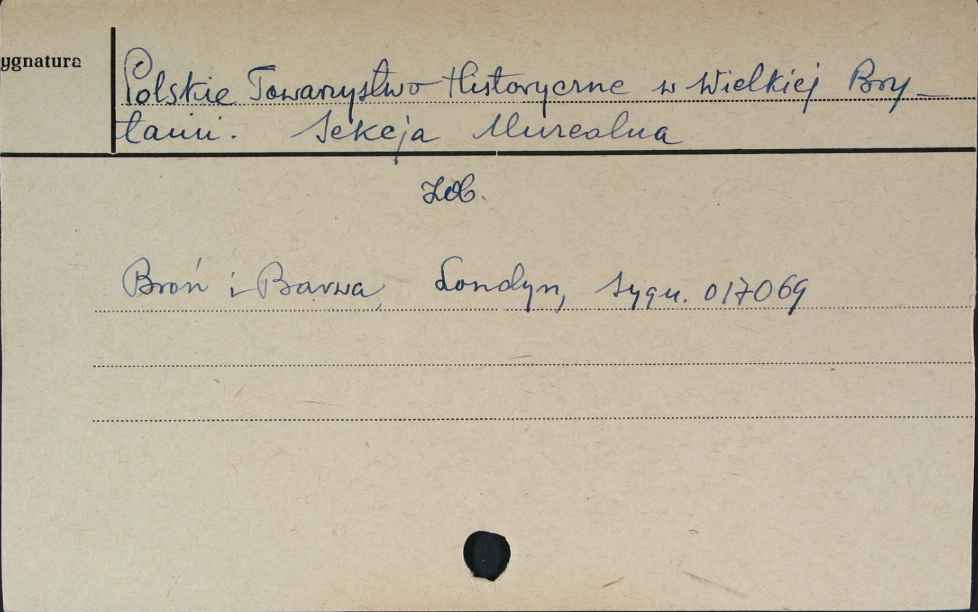 ygnatura
Polskie Towarzystwo Historyczne w Wielkiej Bry-
tanii. Sekcja Muzealna
Zob.
Broń i Barwa, Londyn, sygn. 017069